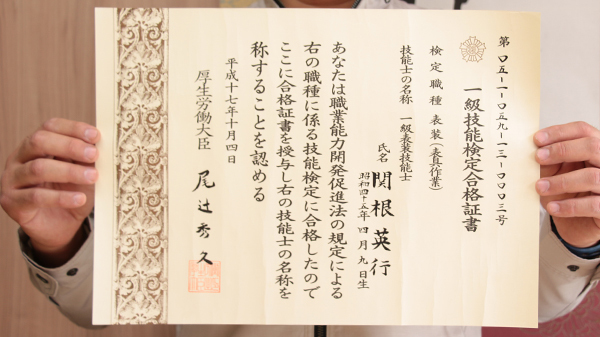 第〇五-一-〇五九-一三-〇〇〇三号
一級技能検定合格証書
検定職種 表装(表具作業)
技能士の名称 一級表装技能士
氏名 関根英行
昭和四十五年四月九日生
あなたは職業能力開発促進法の規定による
右の職種に係る技能検定に合格したので
ここに合格証書を授与し右の技能士の名称を
称することを認める
平成十七年十月四日
厚生労働大臣 尾辻秀久